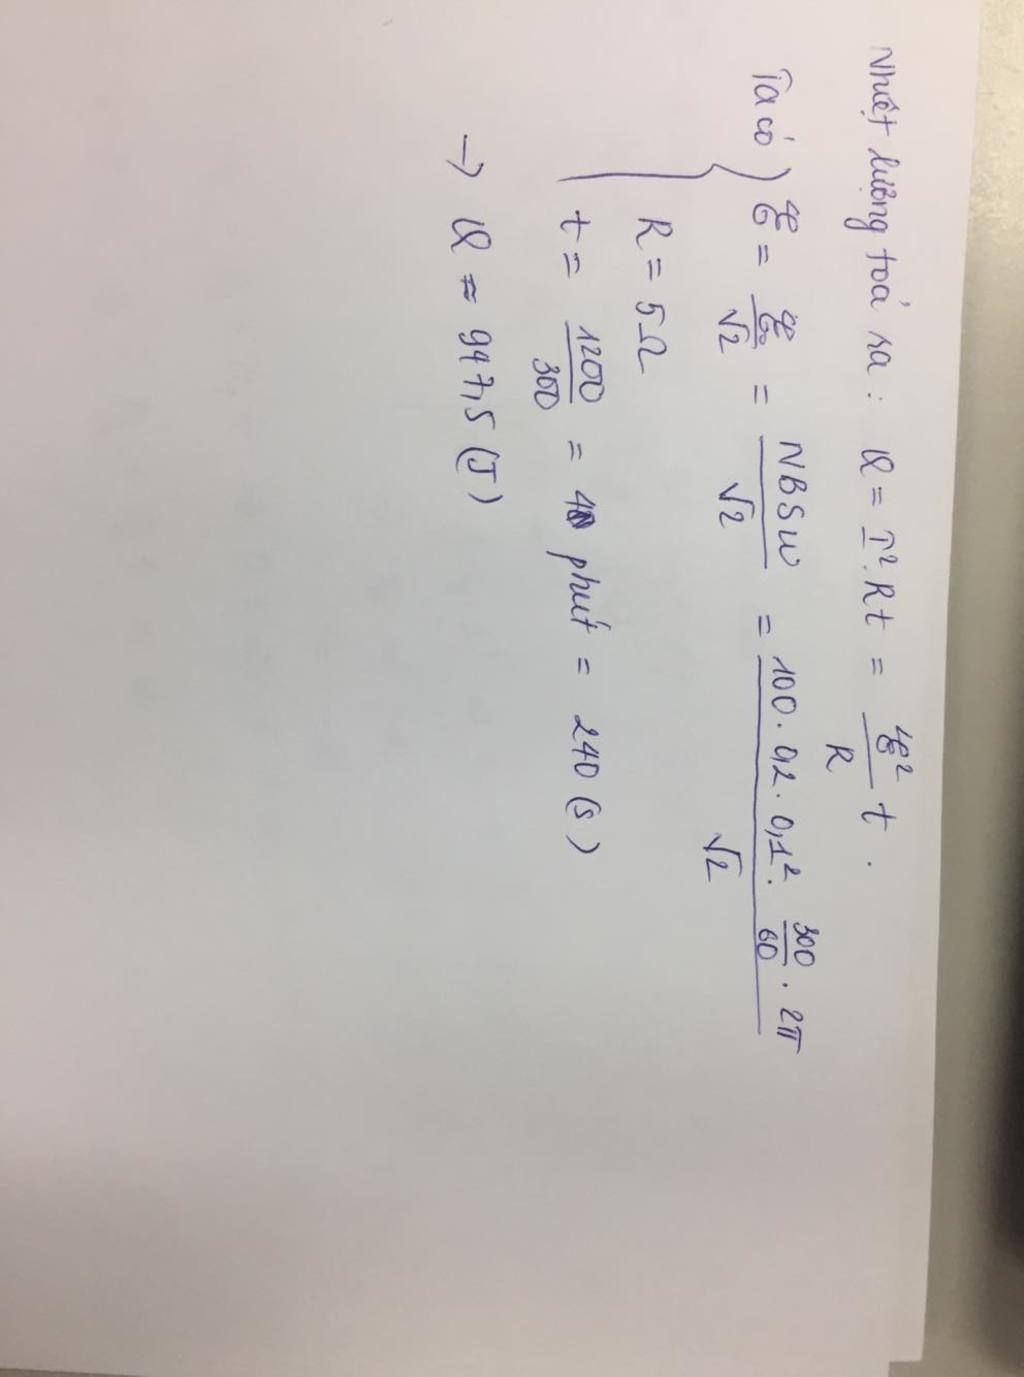 Nhiệt lượng toả ra : Q = I².Rt = ℰ²/R t .
Ta có } ℰ = ℰ₀/√2 = NBSω/√2 = 100 . 0,2 . 0,1² . 300/60 . 2π/√2
R = 5Ω
t = 1200/300 = 4 phút = 240 (s)
→ Q ≈ 947,5 (J)